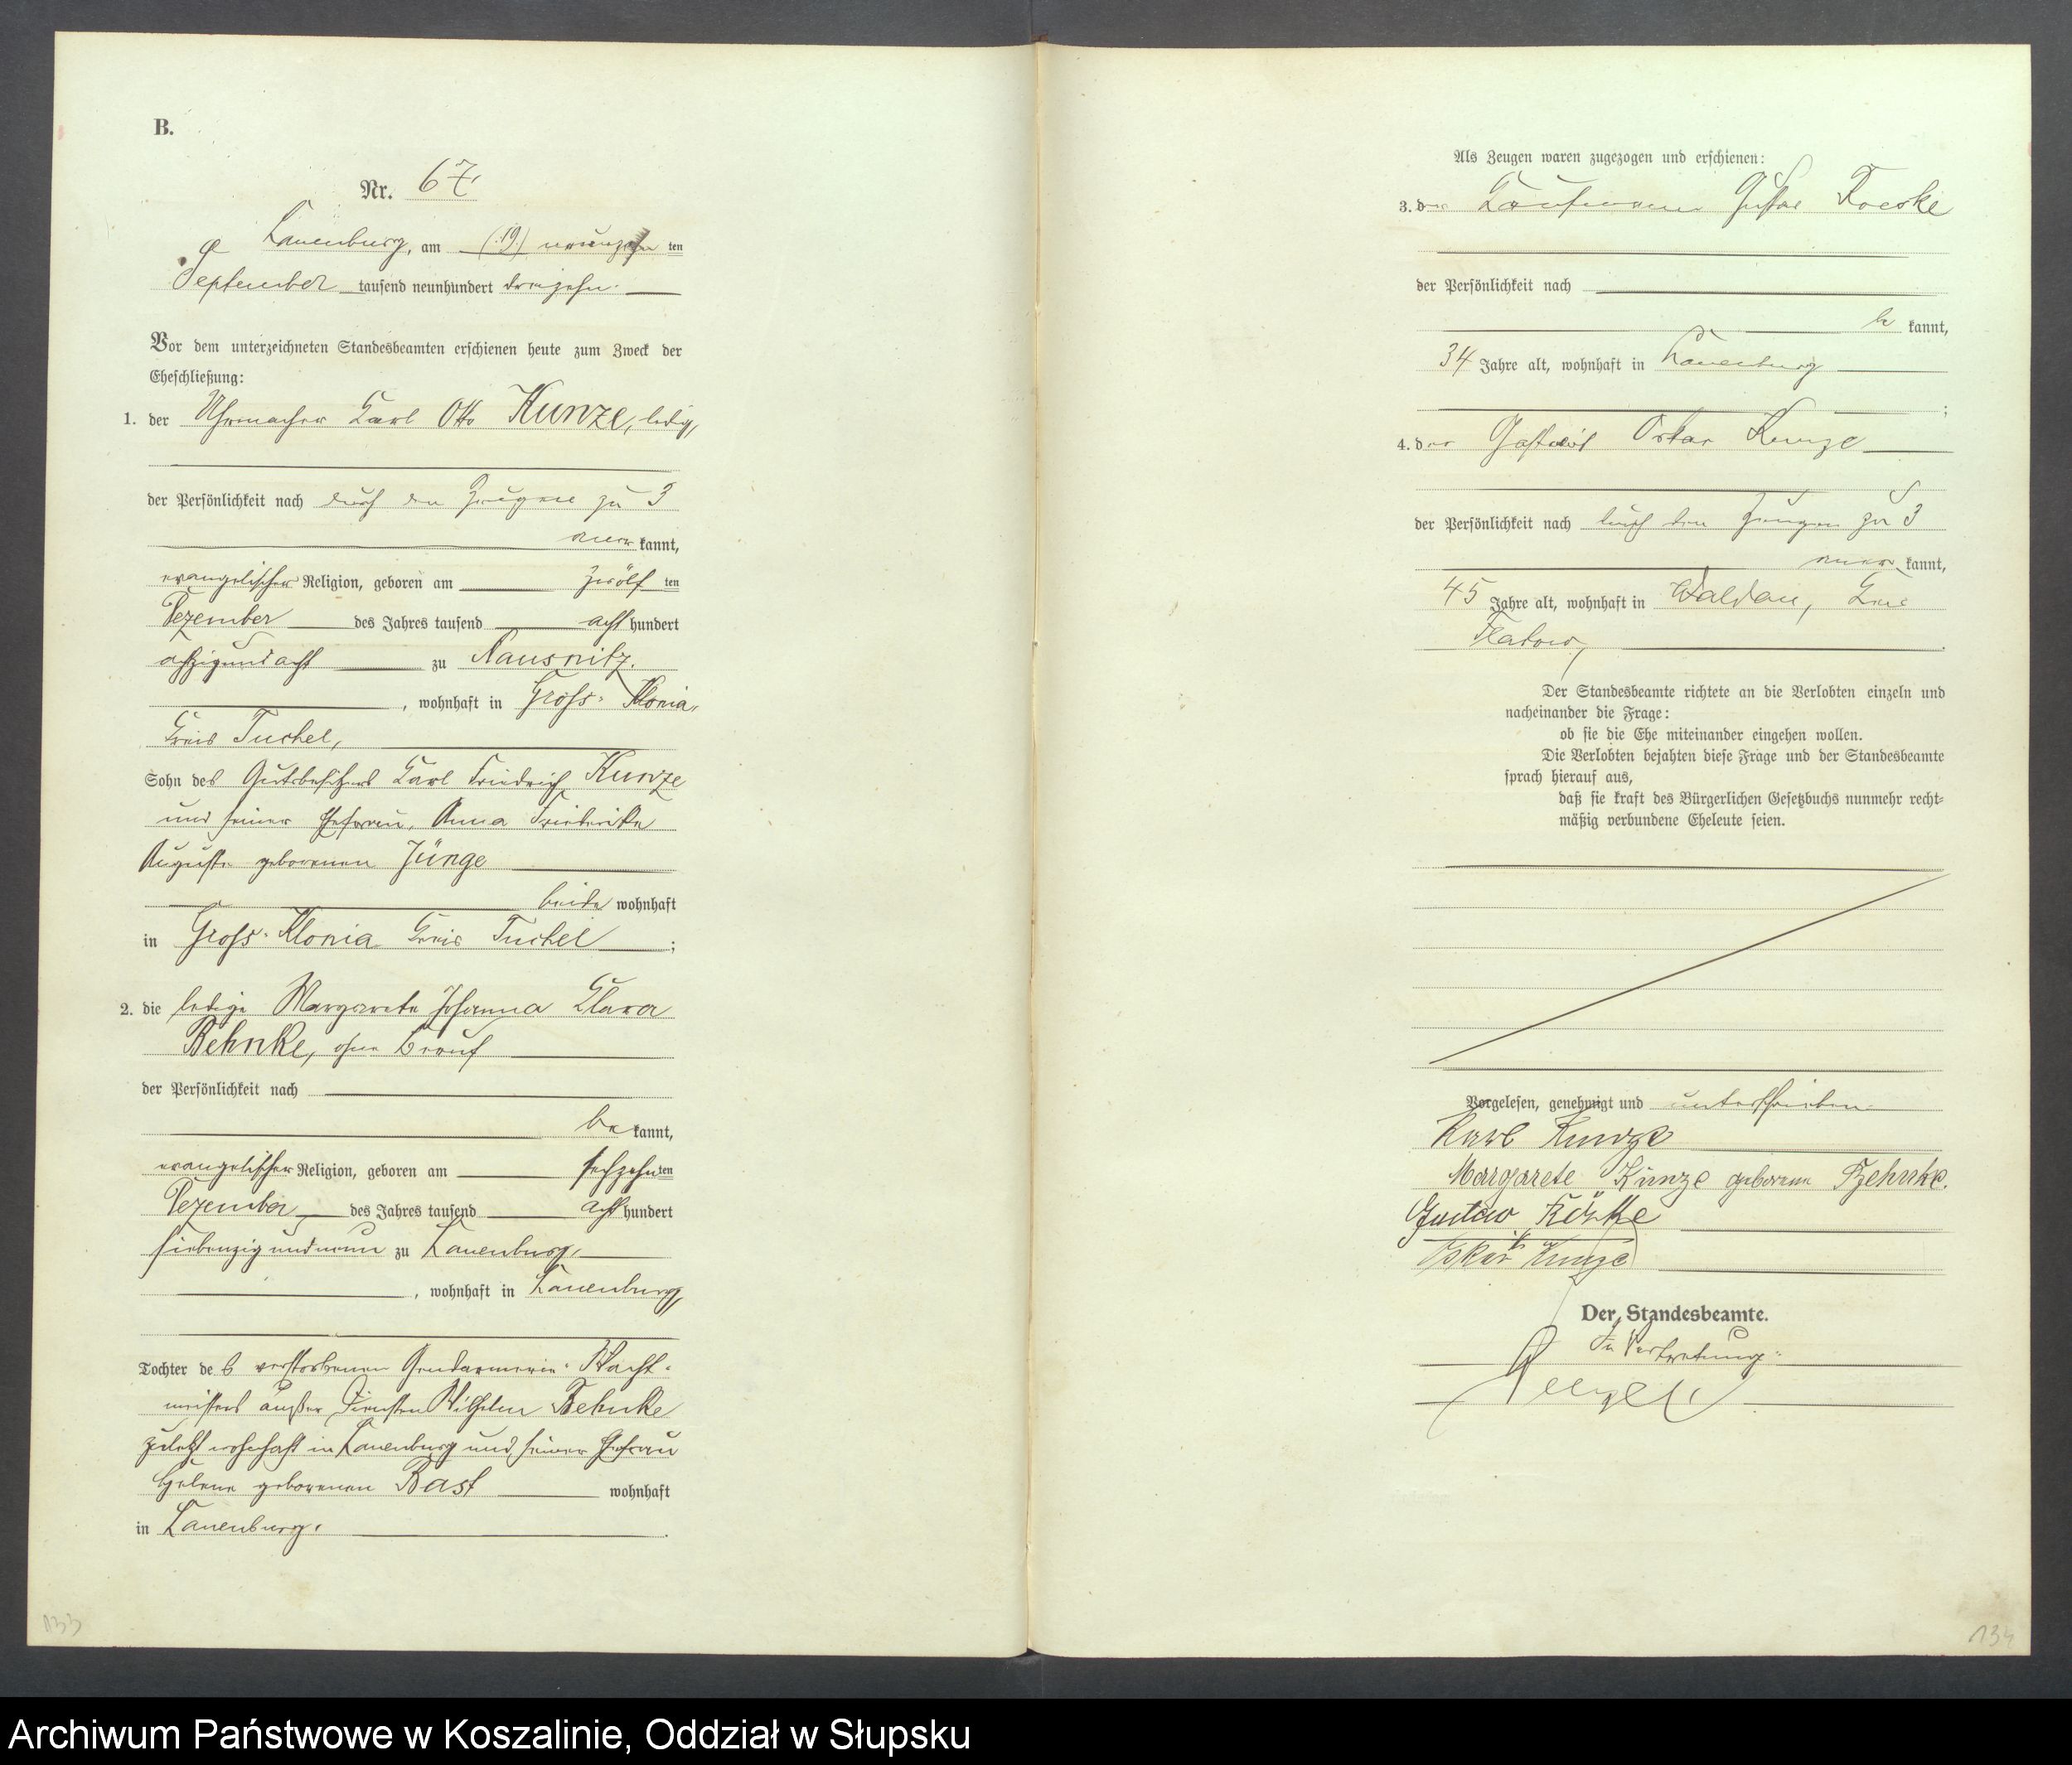 B.
Nr. 67
Lauenburg, am (19) neunzehn ten
September tausend neunhundert dreizehn.
Vor dem unterzeichneten Standesbeamten erschienen heute zum Zweck der
Eheschließung:
1. der Uhrmacher Karl Otto Kunze, ledig,
der Persönlichkeit nach durch den Zeugen zu 3
aner kannt,
evangelischer Religion, geboren am zwölf ten
Dezember des Jahres tausend acht hundert
achtzigundacht zu Nausnitz.
, wohnhaft in Gross-Klonia,
Kreis Tuchel,
Sohn des Gutsbesitzers Karl Friedrich Kunze
und seiner Ehefrau, Anna Friederike
Auguste geborenen Jünge
beide wohnhaft
in Gross-Klonia Kreis Tuchel ;
2. die ledige Margarete Johanna Klara
Behnke, ohne Beruf
der Persönlichkeit nach
be kannt,
evangelischer Religion, geboren am sechzehn ten
Dezember des Jahres tausend acht hundert
siebenzigundneun zu Lauenburg,
, wohnhaft in Lauenburg,
Tochter des verstorbenen Gendarmerie-Wacht-
meisters außer Diensten Wilhelm Behnke
zuletzt wohnhaft in Lauenburg und seiner Ehefrau
Helene geborenen Bast wohnhaft
in Lauenburg.
133
Als Zeugen waren zugezogen und erschienen:
3. der Kaufmann Gustav Koeske
der Persönlichkeit nach
be kannt,
34 Jahre alt, wohnhaft in Lauenburg
;
4. der Gastwirt Oskar Kunze
der Persönlichkeit nach durch den Zeugen zu 3
aner kannt,
45 Jahre alt, wohnhaft in Waldau, Kreis
Flatow,
Der Standesbeamte richtete an die Verlobten einzeln und
nacheinander die Frage:
ob sie die Ehe miteinander eingehen wollen.
Die Verlobten bejahten diese Frage und der Standesbeamte
sprach hierauf aus,
daß sie kraft des Bürgerlichen Gesetzbuchs nunmehr recht-
mäßig verbundene Eheleute seien.
Vorgelesen, genehmigt und unterschrieben
Karl Kunze
Margarete Kunze geborene Behnke.
Gustav
Oskar Kunze
Der Standesbeamte.
In Vertretung:
134
Archiwum Państwowe w Koszalinie, Oddział w Słupsku